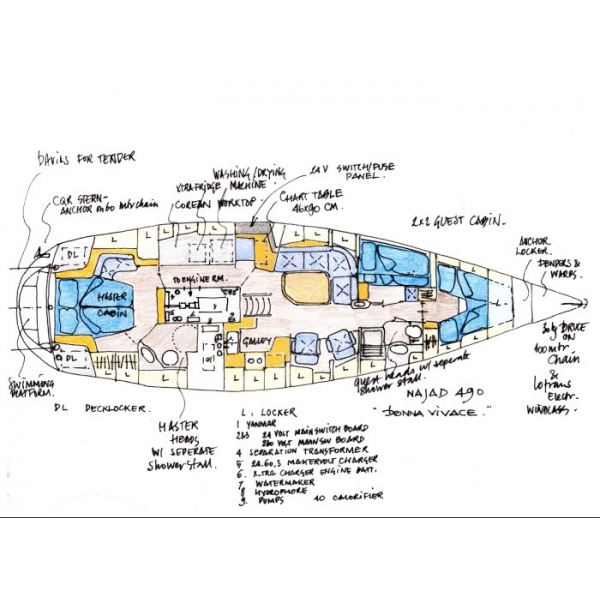 DAVITS FOR TENDER
CQR STERN-
ANCHOR m60 mtr chain
WASHING/DRYING
MACHINE
XTRA FRIDGE
COREAN WORKTOP.
24V SWITCH/FUSE
PANEL.
CHART TABLE
46x90 CM.
2x2 GUEST CABIN
ANCHOR
LOCKER.
FENDERS &
WARPS.
L L L L L L
DL
TO ENGINE RM.
MASTER
CABIN
GALLEY
DL
L L L L L
SWIMMING
PLATFORM.
DL DECKLOCKER.
guest heads w/ seperate
shower stall.
BRUCE
ON
100 mtr
Chain
&
Lofrans
Electr.
WINDLASS.
MASTER
HEADS
W/ SEPERATE
shower stall.
NAJAD 490
"DONNA VIVACE."
L, LOCKER
1 YANMAR
2&3 24 VOLT MAINSWITCH BOARD
230 VOLT MAINSW BOARD
4 SEPARATION TRANSFORMER
5 24.60.3 MASTERVOLT CHARGER
6. XTRA CHARGER ENGINE BATT.
7 WATERMAKER
8 HYDROPHORE
9. PUMPS 10 CALORIFIER